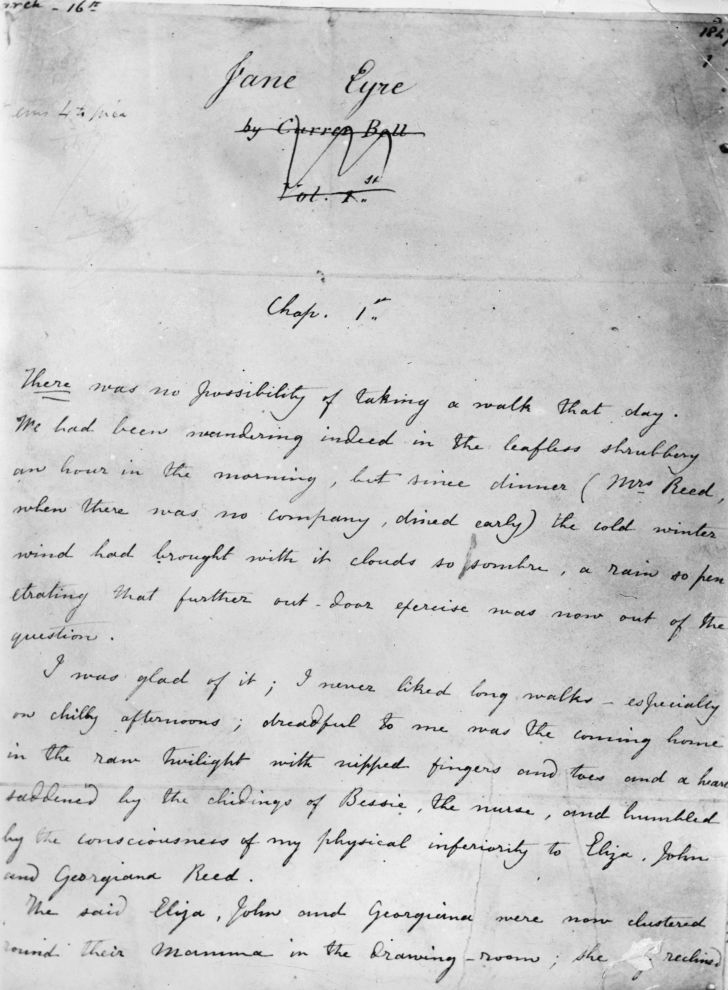 March - 16th
184
1
Jane Eyre
by Currer Bell
Vol. 1st
Chap. 1st
There was no possibility of taking a walk that day.
We had been wandering indeed in the leafless shrubbery
an hour in the morning, but since dinner (Mrs Reed,
when there was no company, dined early) the cold winter
wind had brought with it clouds so sombre, a rain so pen
etrating that further out-door exercise was now out of the
question.
I was glad of it; I never liked long walks - especially
on chilly afternoons; dreadful to me was the coming home
in the raw twilight with nipped fingers and toes and a heart
saddened by the chidings of Bessie, the nurse, and humbled
by the consciousness of my physical inferiority to Eliza, John
and Georgiana Reed.
The said Eliza, John and Georgiana were now clustered
round their Mamma in the drawing-room; she reclined